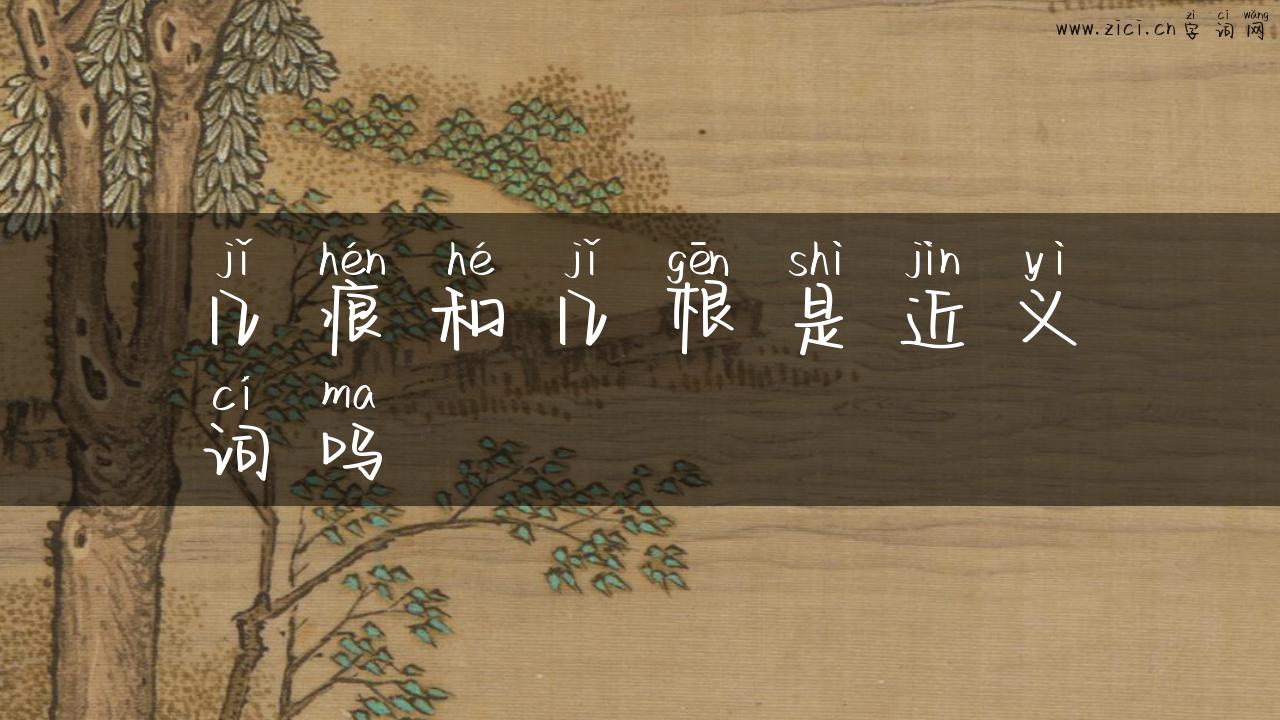 zì cí wǎng
www.zici.cn 字词网
jǐ hén hé jǐ gēn shì jìn yì
几痕和几根是近义
cí ma
词吗